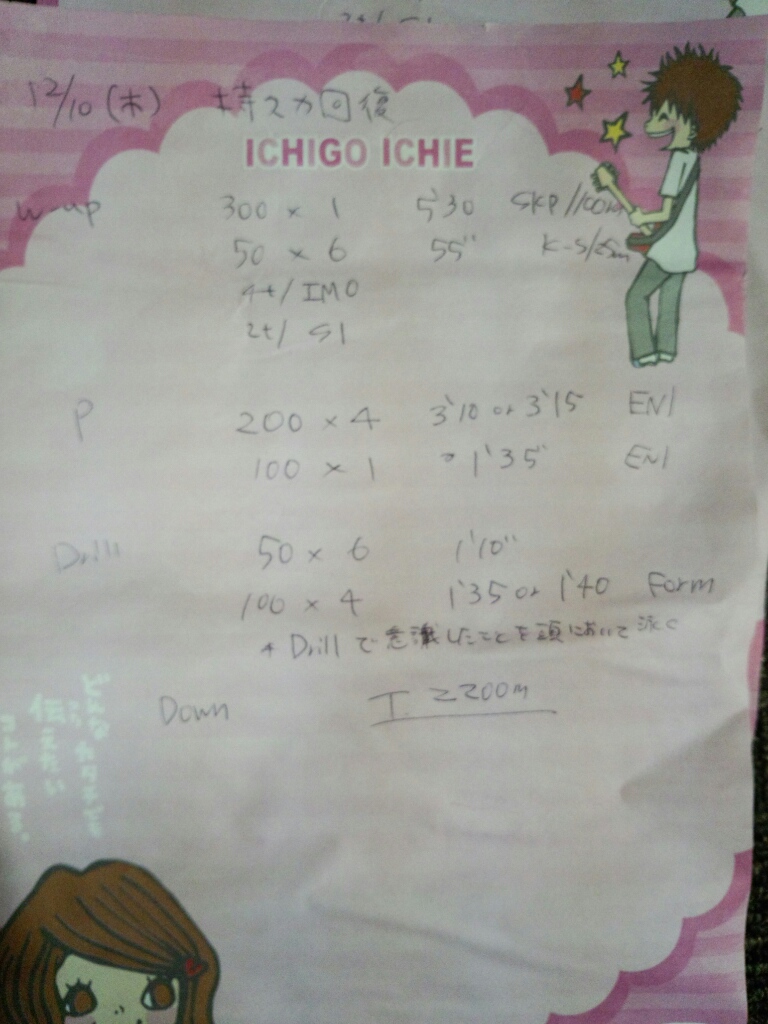 12/10 (木) 持久力回復
ICHIGO ICHIE
w-up 300 × 1 5'30 SKP/100m
50 × 6 55" K-S/25m
4t/IMO
2t/ S1
P 200 × 4 3'10 or 3'15 EN1
100 × 1 1'35" EN1
Drill 50 × 6 1'10"
100 × 4 1'35 or 1'40 Form
* Drillで意識したことを頭において泳ぐ
Down
T. 2200m
どんな
伝えたい